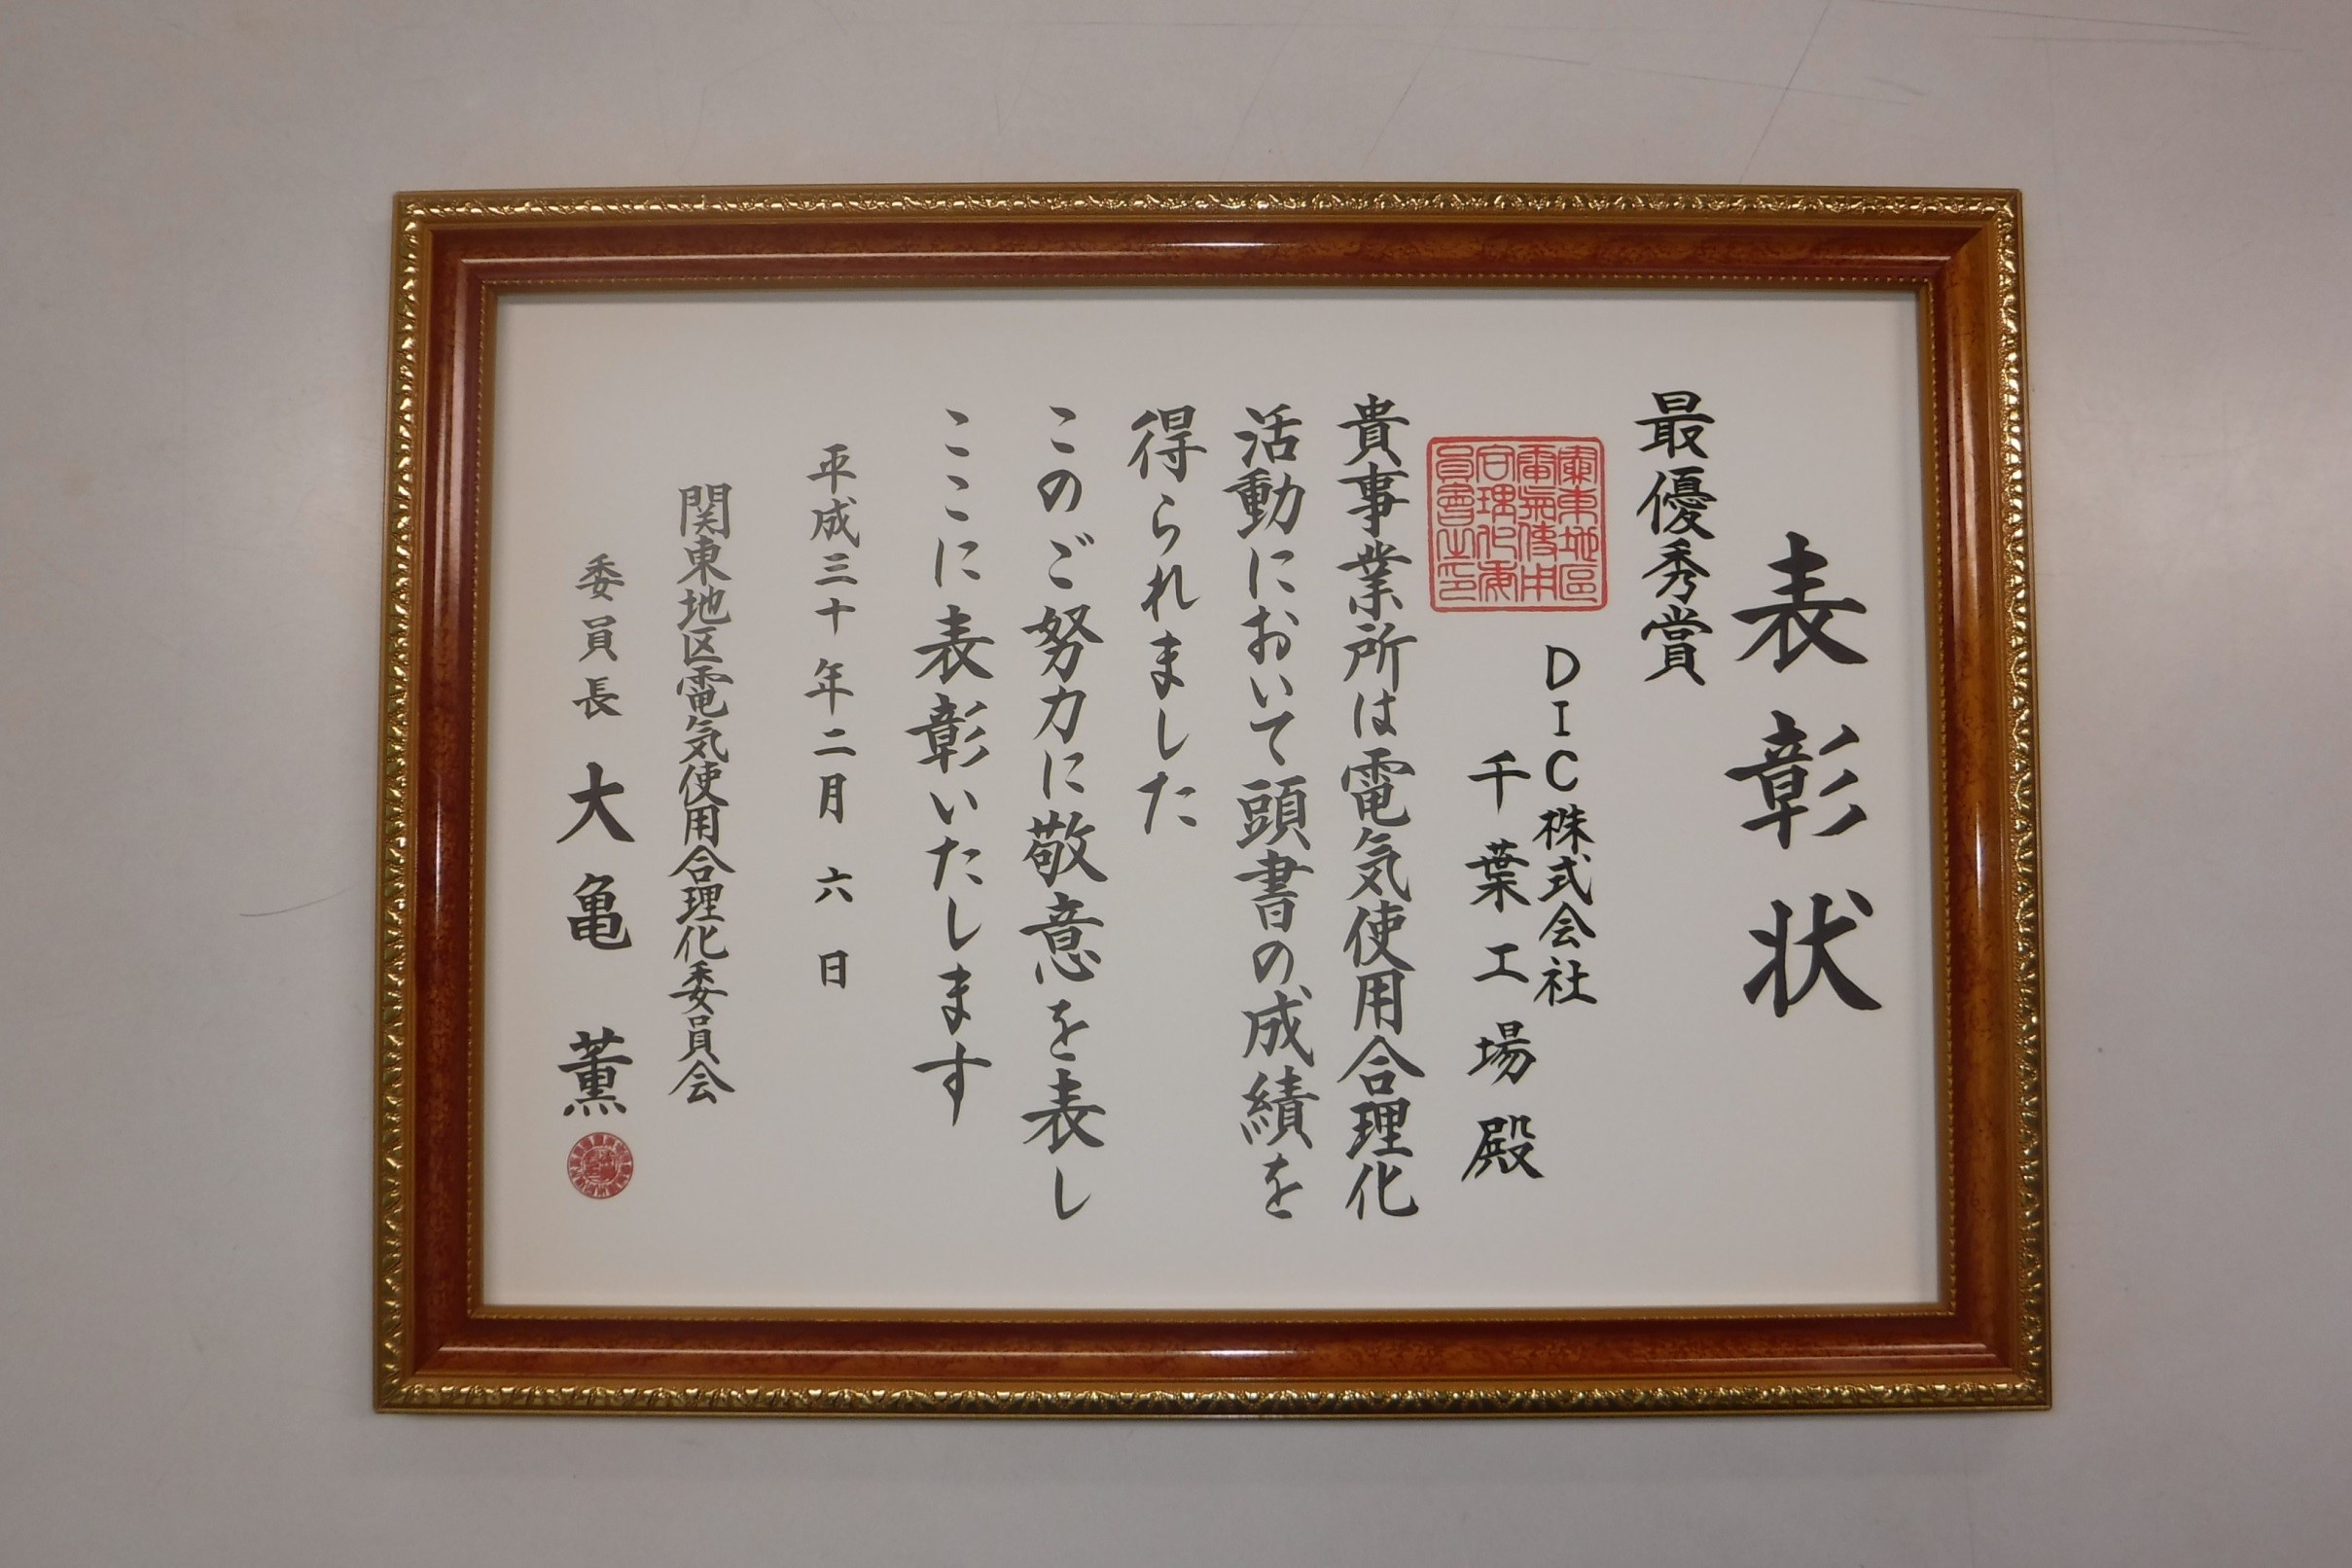 表彰状
最優秀賞
DIC株式会社
千葉工場殿
關東地區
電氣使用
合理化委
員會之印
貴事業所は電気使用合理化
活動において頭書の成績を
得られました
このご努力に敬意を表し
ここに表彰いたします
平成三十年二月六日
関東地区電気使用合理化委員会
委員長 大亀 薫